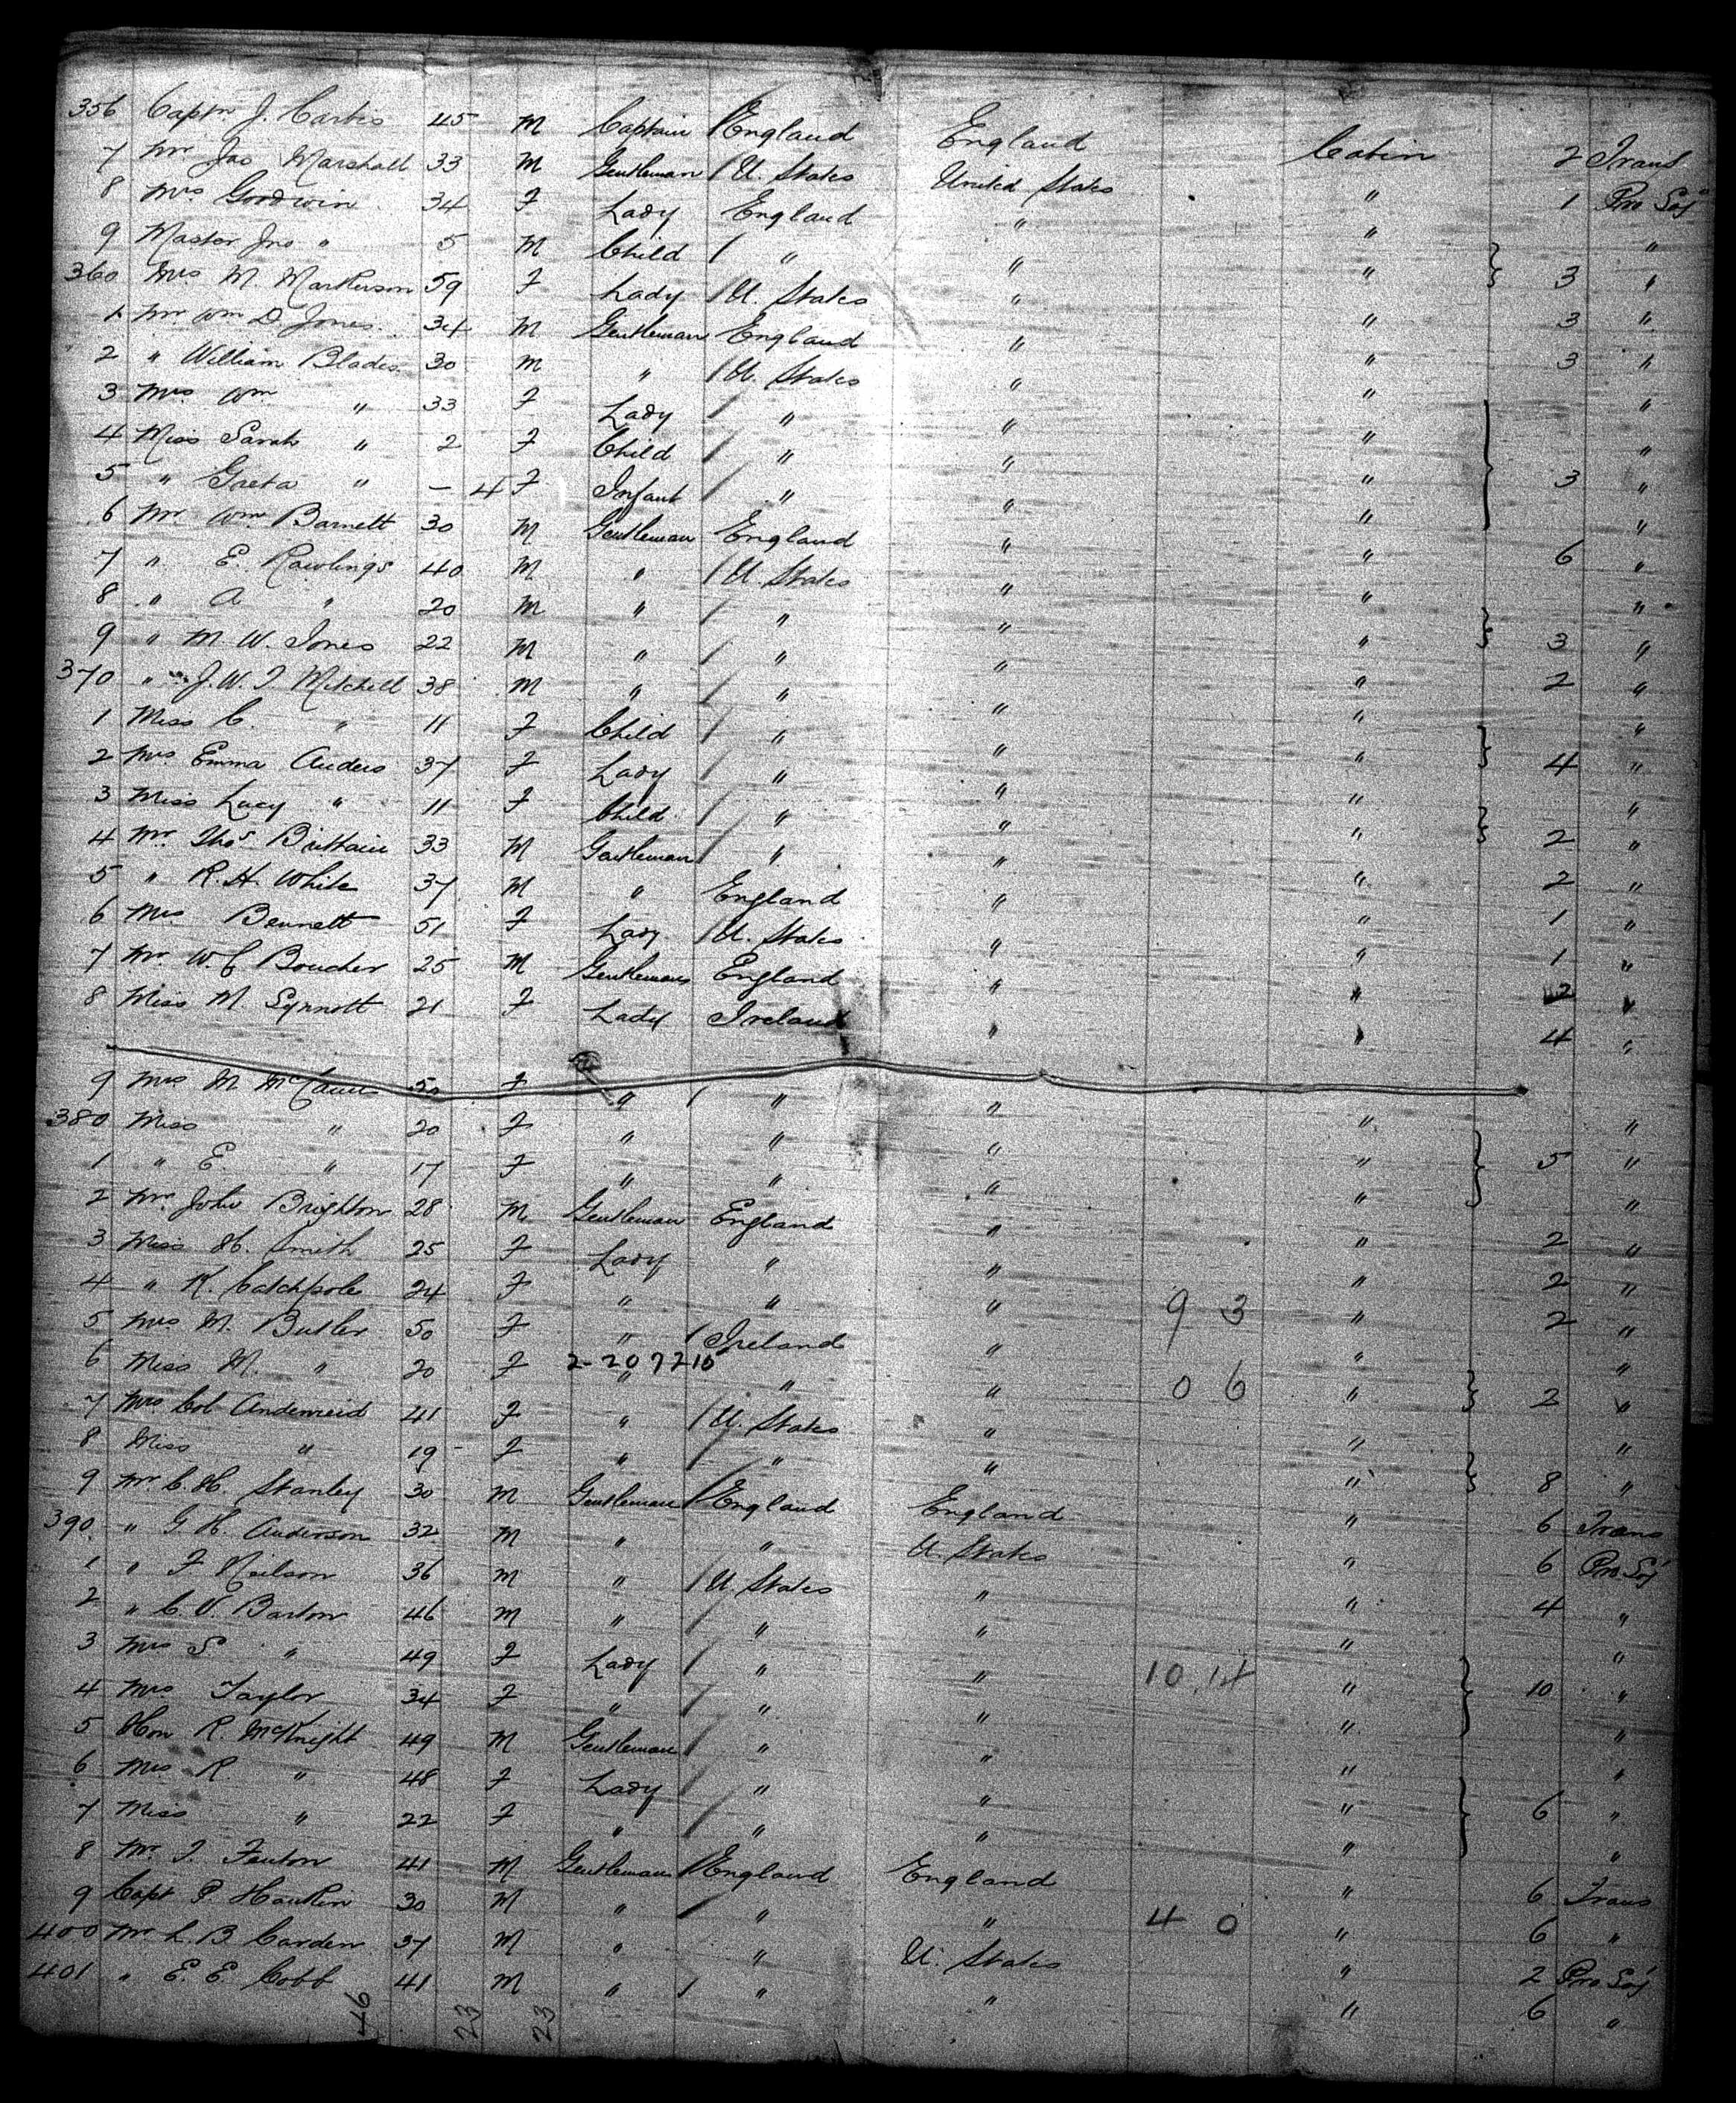 356 Captn J. Carbis 45 M Captain / England England Cabin 2 Trans
7 Mr Jas Marshall 33 M Gentleman / U. States United States " 1 Pro Soj
8 Mrs Goodwin 34 F Lady England " " "
9 Master Jno " 5 M Child / " " " } 3 "
360 Mrs M. 59 F Lady / U. States " " 3 "
1 Mr Wm D. Jones 34 M Gentleman England " " 3 "
2 " William Blades 30 M " / U. States " " "
3 Mrs Wm " 33 F Lady / " " " "
4 Miss Sarah " 2 F Child / " " " } 3 "
5 " Greta " - 4 F Infant / " " " "
6 Mr Wm Barnett 30 M Gentleman England " " 6 "
7 " E. Rawlings 40 M " / U. States " " "
8 " A " 20 M " / " " " } 3 "
9 " M. W. Jones 22 M " / " " " 2 "
370 " J. W. T. Mitchell 38 M " / " " " "
1 Miss C. " 11 F Child / " " " } 4 "
2 Mrs Emma Anders 37 F Lady / " " " "
3 Miss Lucy " 11 F Child / " " " } 2 "
4 Mr Thos Brittain 33 M Gentleman / " " " 2 "
5 " R. H. White 37 M " England " " 1 "
6 Mrs Bennett 51 F Lady / U. States " " 1 "
7 Mr W. C. Boucher 25 M Gentleman England " " 2 "
8 Miss M. Synnott 21 F Lady Ireland " " 4 "
9 Mrs M 50 F " / " " " "
380 Miss " 20 F " " " " } 5 "
1 " E. " 17 F " " " " "
2 Mr John Brighton 28 M Gentleman England " " 2 "
3 Miss H. Smith 25 F Lady " " " 2 "
4 " K. Catchpole 24 F " " " 9 3 " 2 "
5 Mrs M. Butler 50 F " / Ireland " " "
6 Miss M. " 20 F 2-207210 " " " 0 6 " } 2 "
7 Mrs Col Andenreid 41 F " / U. States " " "
8 Miss " 19 F " / " " " } 8 "
9 Mr C. H. Stanley 30 M Gentleman / England England " 6 Trans
390 " G. H. Anderson 32 M " " U. States " 6 Pro Soj
1 " F Neilson 36 M " / U. States " " 4 "
2 " C. V. Barton 46 M " / " " " "
3 Mrs S " 49 F Lady / " " 10.14 " } 10 "
4 Mrs Taylor 34 F " / " " " "
5 Hon R. McKnight 49 M Gentleman / " " " "
6 Mrs R. " 48 F Lady / " " " } 6 "
7 Miss " 22 F " / " " " "
8 Mr T. Fenton 41 M Gentleman / England England " 6 Trans
9 Capt P. 30 M " / " " 4 0 " 6 "
400 Mr L. B. Carden 37 M " " U. States " 2 Pro Soj
401 " E. E. Cobb 41 M " / " " " 6 "
46 23 23